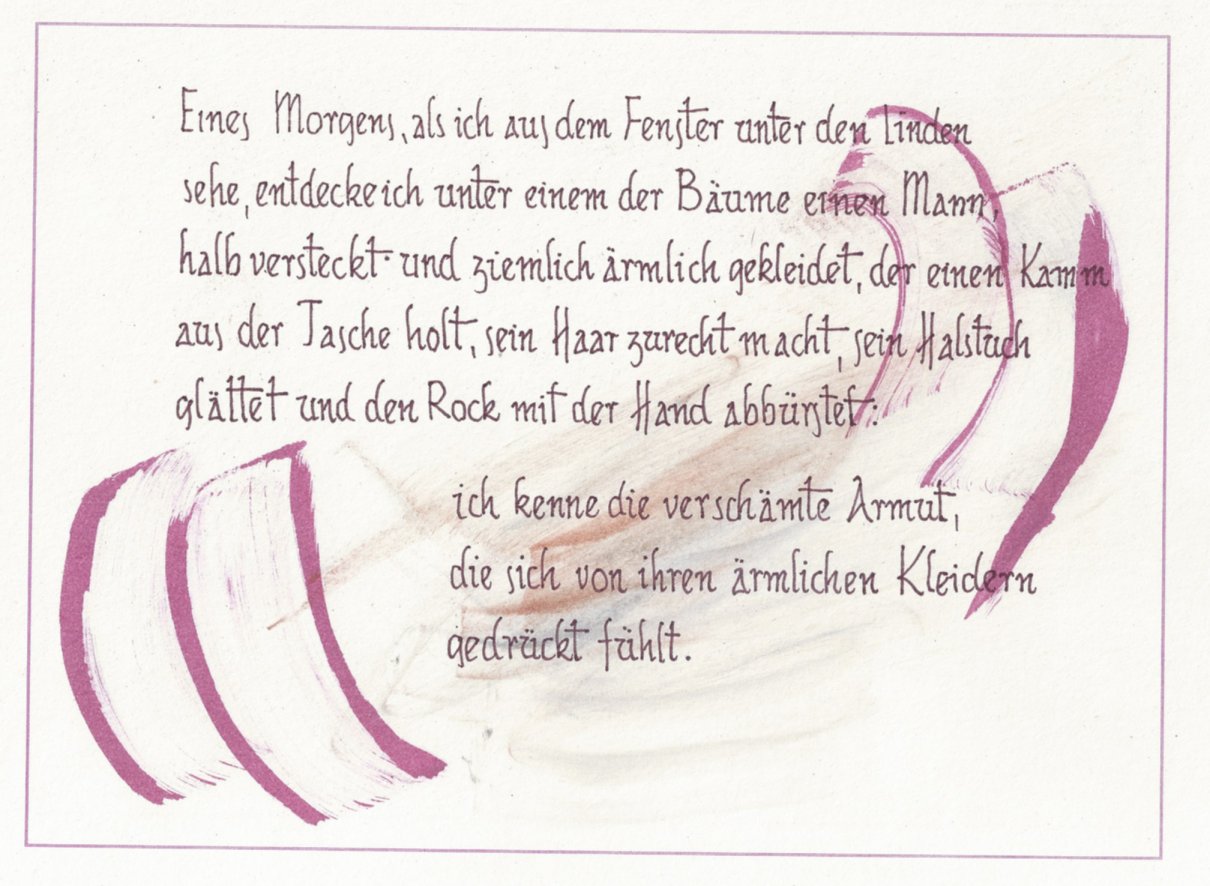 Eines Morgens, als ich aus dem Fenster unter den Linden
sehe, entdecke ich unter einem der Bäume einen Mann,
halb versteckt und ziemlich ärmlich gekleidet, der einen Kamm
aus der Tasche holt, sein Haar zurecht macht, sein Halstuch
glättet und den Rock mit der Hand abbürstet:
ich kenne die verschämte Armut,
die sich von ihren ärmlichen Kleidern
gedrückt fühlt.